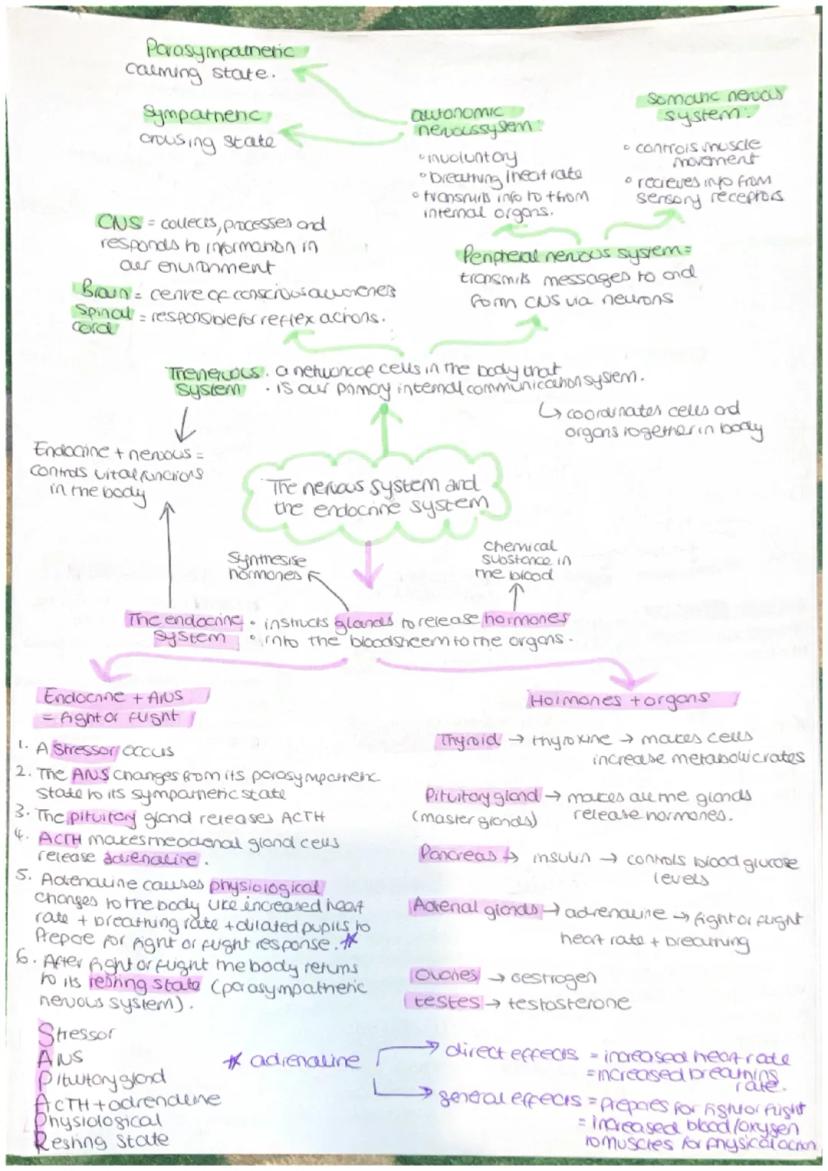 Parasympathetic
calming state.
Sympathetic
arousing state
autonomic
nervous system:
◦ involuntary
◦ breathing / heart rate
◦ transmits info to + from
internal organs.
Somatic nervous
system:
◦ controls muscle
movement
◦ recieves info from
sensory receptors
CNS = collects, processes and
responds to information in
our environment
Brain = centre of conscious awareness
Spinal
cord = responsible for reflex actions.
Peripheral nervous system =
transmits messages to and
form CNS via neurons
The nervous
system
· a network of cells in the body that
· is our primary internal communication system.
↳ coordinates cells and
organs together in body
Endocrine + nervous =
controls vital functions
in the body
The nervous system and
the endocrine system
Synthesise
hormones
chemical
substance in
the blood
The endocrine
system
◦ instructs glands to release hormones
◦ into the bloodstream to the organs.
Endocrine + ANS
= fight or flight
1. A stressor occurs
2. The ANS changes from its parasympathetic
state to its sympathetic state
3. The pituitary gland releases ACTH
4. ACTH makes the adrenal gland cells
release adrenaline.
5. Adrenaline causes physiological
changes to the body like increased heart
rate + breathing rate + dilated pupils to
prepare for fight or flight response. *
6. After fight or flight the body returns
to its resting state (parasympathetic
nervous system).
Stressor
ANS
Pituitary gland
ACTH + adrenaline
Physiological
Resting state
Hormones + organs
Thyroid → thyroxine → makes cells
increase metabolic rates
Pituitary gland → makes all the glands
(master glands) release hormones.
Pancreas → insulin → controls blood glucose
levels
Adrenal glands → adrenaline → fight or flight
heart rate + breathing
Ovaries → oestrogen
testes → testosterone
* adrenaline
→ direct effects = increased heart rate
= increased breathing
rate.
→ general effects = prepares for fight or flight
= increased blood/oxygen
to muscles for physical action